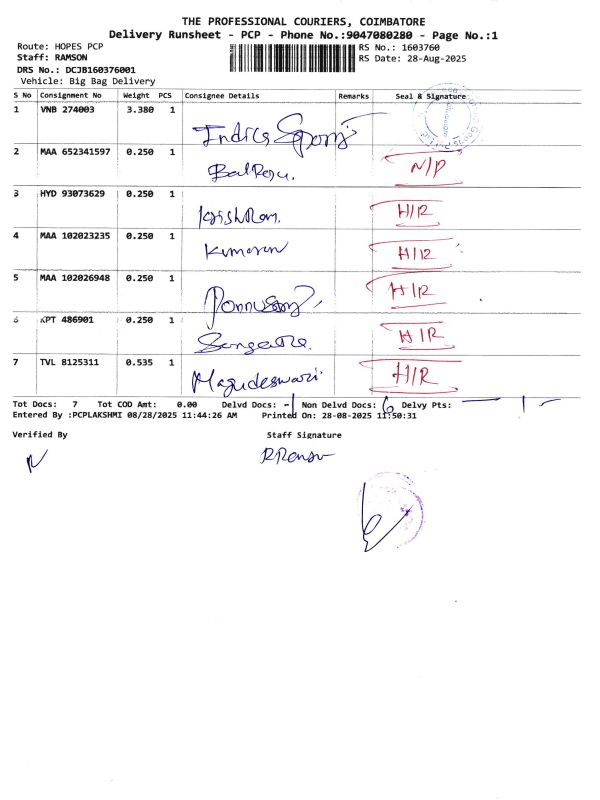 THE PROFESSIONAL COURIERS, COIMBATORE
Delivery Runsheet - PCP - Phone No.:9047080280 - Page No.:1
Route: HOPES PCP RS No.: 1603760
Staff: RAMSON RS Date: 28-Aug-2025
DRS No.: DCJB160376001
Vehicle: Big Bag Delivery
S No Consignment No Weight PCS Consignee Details Remarks Seal & Signature
1 VNB 274003 3.380 1
2 MAA 652341597 0.250 1 N/P
3 HYD 93073629 0.250 1 H/R
4 MAA 102023235 0.250 1 Kumaran H/R
5 MAA 102026948 0.250 1 H/R
6 KPT 486901 0.250 1 H/R
7 TVL 8125311 0.535 1 Magudeswari H/R
Tot Docs: 7 Tot COD Amt: 0.00 Delvd Docs: -1 Non Delvd Docs: 6 Delvy Pts: 1 -
Entered By :PCPLAKSHMI 08/28/2025 11:44:26 AM Printed On: 28-08-2025 11:50:31
Verified By Staff Signature